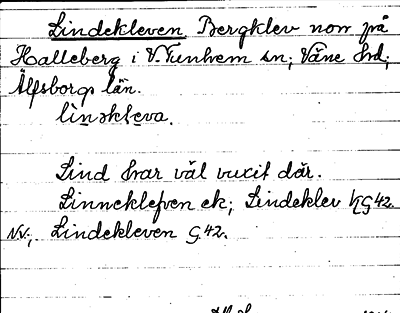 Lindekleven Bergklev norr på
Halleberg i V. Tunhem sn; Väne hd;
Älfsborgs län.
li̲nəkle̲va.
Lind har väl vuxit där.
Linneklefven ek; Lindeklev G42
NV; Lindekleven G42.